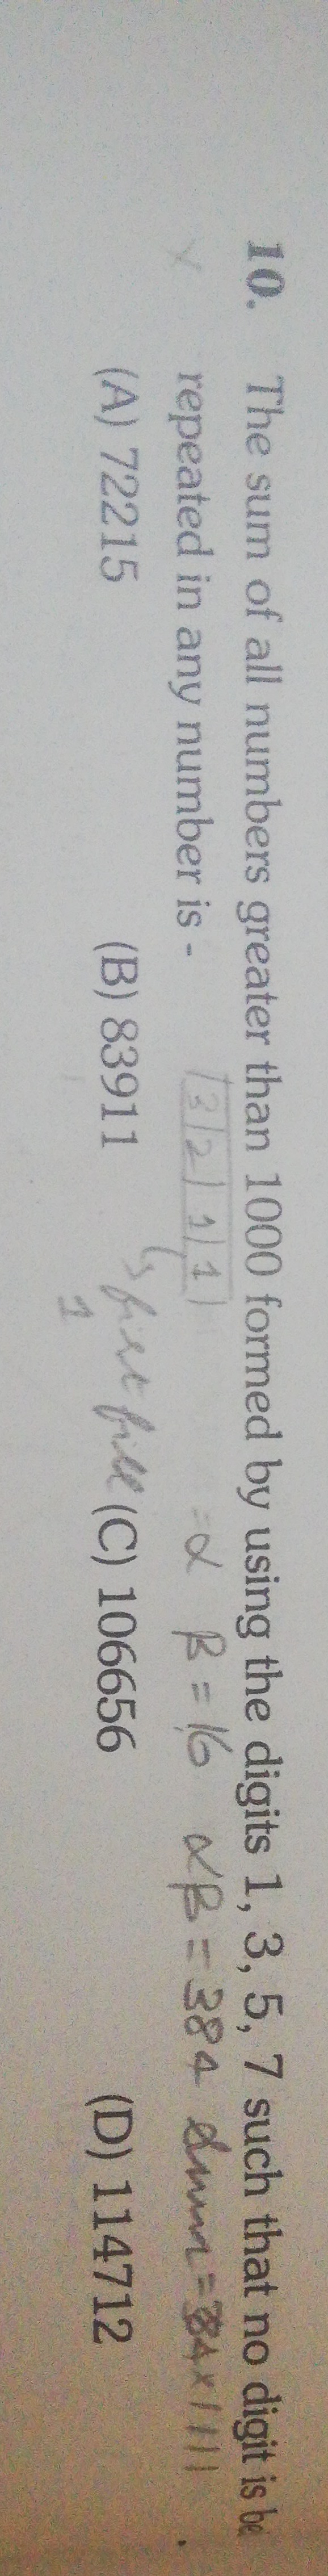 10. The sum of all numbers greater than 1000 formed by using the digits 1, 3, 5, 7 such that no digit is be
repeated in any number is -
3 2 1 1
= α β = 16 αβ = 384 Sum = 384 × 1111
(A) 72215 (B) 83911 (C) 106656 (D) 114712
first fill
1